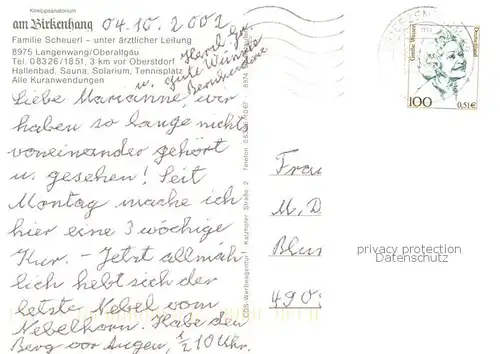 Kneippsanatorium
am Birkenhang 04.10.2001
Familie Scheuerl – unter ärztlicher Leitung
8975 Langenwang/Oberallgäu
Tel. 08326/1851, 3 km vor Oberstdorf
Hallenbad, Sauna, Solarium, Tennisplatz
Alle Kuranwendungen
Herzl. Gr.
u. gute Wünsche
Bernhardine
Liebe Marianne, wir
haben so lange nichts
voneinander gehört
u. gesehen! Seit
Montag mache ich
hier eine 3 wöchige
Kur. – Jetzt allmäh
lich hebt sich der
letzte Nebel vom
Nebelhorn. Habe den
Berg vor Augen, ½10 Uhr.
CDS-Werbeagentur
Große Wiese
Deutschland
100
0,51€
Frau
M. D
Blum
490
privacy protection
Datenschutz